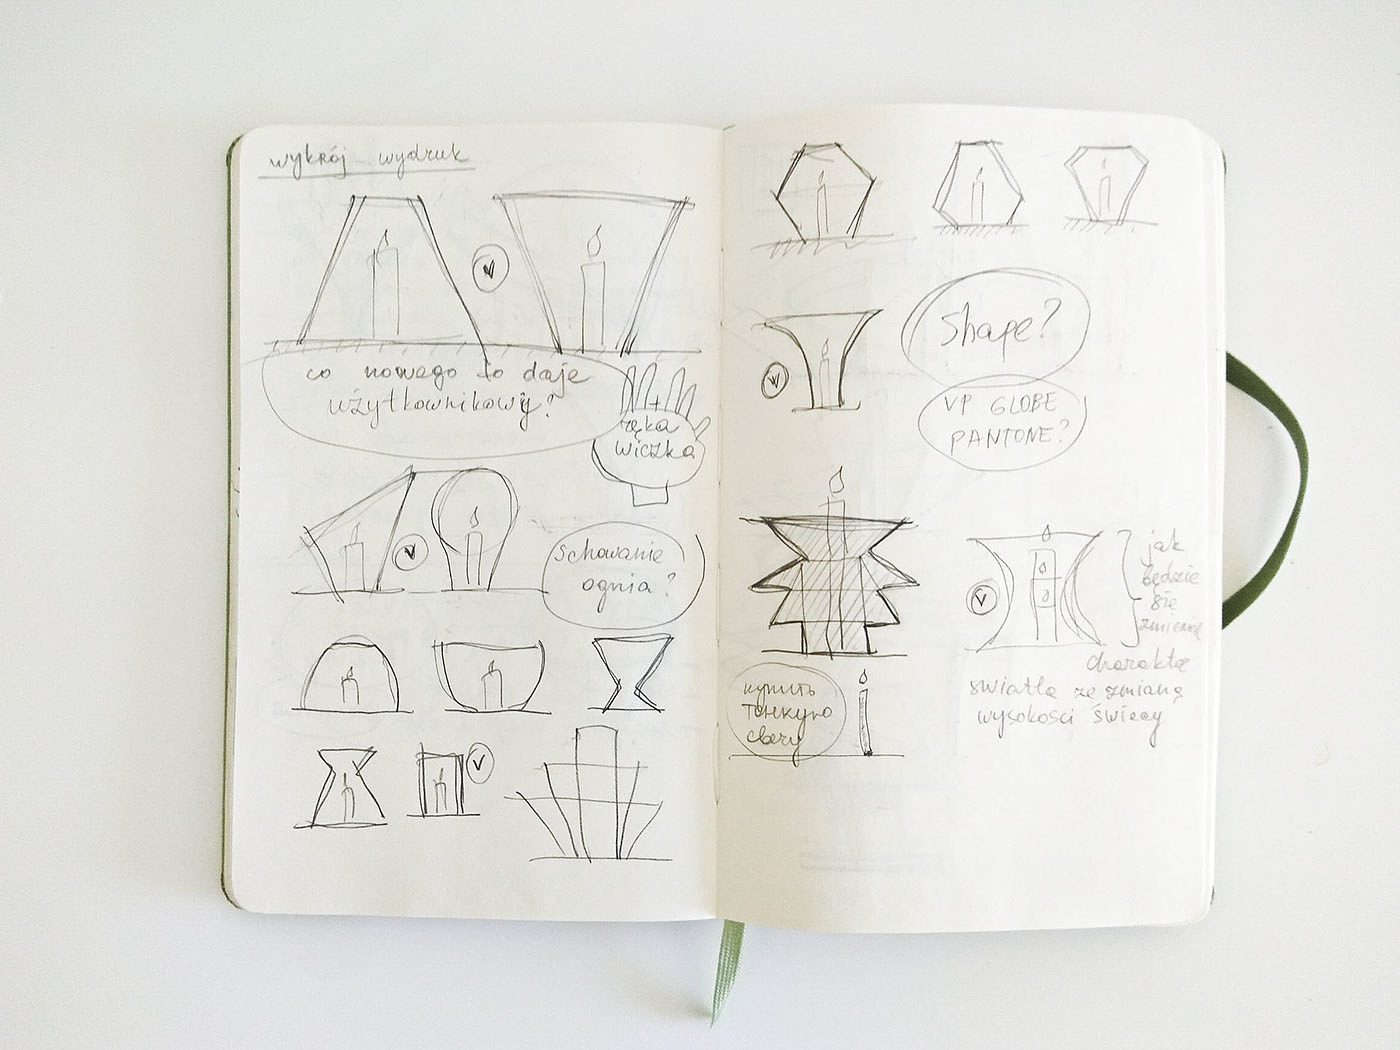 wykrój wydruk
V
co nowego to daje
użytkownikowi?
ręka
wiczka
V
Schowanie
ognia?
V
Shape?
V
VP GLOBE
PANTONE?
V
jak
będzie
się
zmieniać
charakter
światła ze zmianą
wysokości świecy
купить
тонкую
свечу